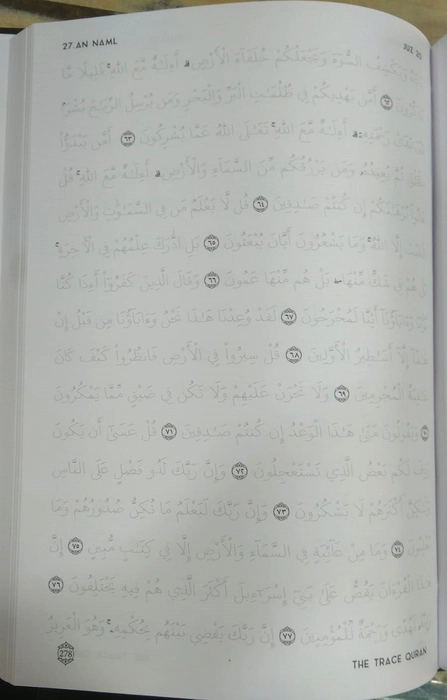 27 AN NAML
JUZ 20
وَيَكْشِفُ السُّوٓءَ وَيَجْعَلُكُمْ خُلَفَآءَ الْأَرْضِ ۗ أَءِلَٰهٌ مَّعَ اللَّهِ ۚ قَلِيلًا مَّا
تَذَكَّرُونَ ٦٢ أَمَّن يَهْدِيكُمْ فِي ظُلُمَٰتِ الْبَرِّ وَالْبَحْرِ وَمَن يُرْسِلُ الرِّيَٰحَ بُشْرًۢا
بَيْنَ يَدَىْ رَحْمَتِهِۦٓ ۗ أَءِلَٰهٌ مَّعَ اللَّهِ ۚ تَعَٰلَى اللَّهُ عَمَّا يُشْرِكُونَ ٦٣ أَمَّن يَبْدَؤُا
الْخَلْقَ ثُمَّ يُعِيدُهُۥ وَمَن يَرْزُقُكُم مِّنَ السَّمَآءِ وَالْأَرْضِ ۗ أَءِلَٰهٌ مَّعَ اللَّهِ ۚ قُلْ
هَاتُوا بُرْهَٰنَكُمْ إِن كُنتُمْ صَٰدِقِينَ ٦٤ قُل لَّا يَعْلَمُ مَن فِي السَّمَٰوَٰتِ وَالْأَرْضِ
الْغَيْبَ إِلَّا اللَّهُ ۚ وَمَا يَشْعُرُونَ أَيَّانَ يُبْعَثُونَ ٦٥ بَلِ ادَّٰرَكَ عِلْمُهُمْ فِي الْآخِرَةِ ۚ
بَلْ هُمْ فِي شَكٍّ مِّنْهَا ۖ بَلْ هُم مِّنْهَا عَمُونَ ٦٦ وَقَالَ الَّذِينَ كَفَرُوٓا أَءِذَا كُنَّا
تُرَٰبًا وَءَابَآؤُنَآ أَئِنَّا لَمُخْرَجُونَ ٦٧ لَقَدْ وُعِدْنَا هَٰذَا نَحْنُ وَءَابَآؤُنَا مِن قَبْلُ إِنْ
هَٰذَآ إِلَّآ أَسَٰطِيرُ الْأَوَّلِينَ ٦٨ قُلْ سِيرُوا فِي الْأَرْضِ فَانظُرُوا كَيْفَ كَانَ
عَٰقِبَةُ الْمُجْرِمِينَ ٦٩ وَلَا تَحْزَنْ عَلَيْهِمْ وَلَا تَكُن فِي ضَيْقٍ مِّمَّا يَمْكُرُونَ
٧٠ وَيَقُولُونَ مَتَىٰ هَٰذَا الْوَعْدُ إِن كُنتُمْ صَٰدِقِينَ ٧١ قُلْ عَسَىٰٓ أَن يَكُونَ
رَدِفَ لَكُم بَعْضُ الَّذِي تَسْتَعْجِلُونَ ٧٢ وَإِنَّ رَبَّكَ لَذُو فَضْلٍ عَلَى النَّاسِ
وَلَٰكِنَّ أَكْثَرَهُمْ لَا يَشْكُرُونَ ٧٣ وَإِنَّ رَبَّكَ لَيَعْلَمُ مَا تُكِنُّ صُدُورُهُمْ وَمَا
يُعْلِنُونَ ٧٤ وَمَا مِنْ غَآئِبَةٍ فِي السَّمَآءِ وَالْأَرْضِ إِلَّا فِي كِتَٰبٍ مُّبِينٍ ٧٥ إِنَّ
هَٰذَا الْقُرْءَانَ يَقُصُّ عَلَىٰ بَنِيٓ إِسْرَٰٓءِيلَ أَكْثَرَ الَّذِي هُمْ فِيهِ يَخْتَلِفُونَ ٧٦
وَإِنَّهُۥ لَهُدًى وَرَحْمَةٌ لِّلْمُؤْمِنِينَ ٧٧ إِنَّ رَبَّكَ يَقْضِي بَيْنَهُم بِحُكْمِهِۦ ۚ وَهُوَ الْعَزِيزُ
278
THE TRACE QURAN